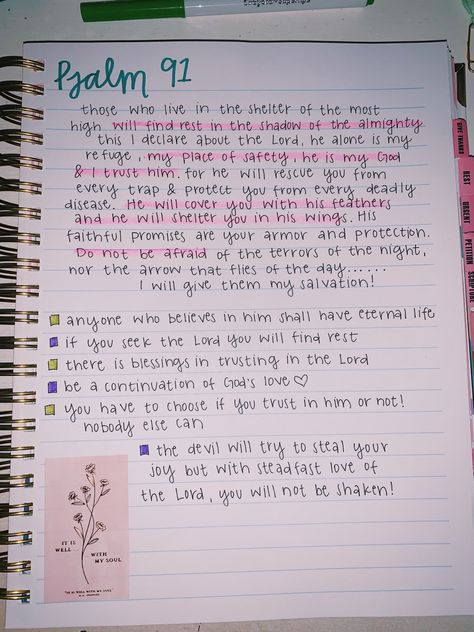 Psalm 91
those who live in the shelter of the most
high will find rest in the shadow of the almighty
this I declare about the Lord, he alone is my
refuge, my place of safety, he is my God
& I trust him. for he will rescue you from
every trap & protect you from every deadly
disease. He will cover you with his feathers
and he will shelter you in his wings. His
faithful promises are your armor and protection.
Do not be afraid of the terrors of the night,
nor the arrow that flies of the day......
I will give them my salvation!
anyone who believes in him shall have eternal life
if you seek the Lord you will find rest
there is blessings in trusting in the Lord
be a continuation of God's love ♡
you have to choose if you trust in him or not!
nobody else can
the devil will try to steal your
joy but with steadfast love of
the Lord, you will not be shaken!
IT IS
WELL
WITH
MY SOUL
"IT IS WELL WITH MY SOUL"
GIVE THANKS
REST
URGENT
PETITION